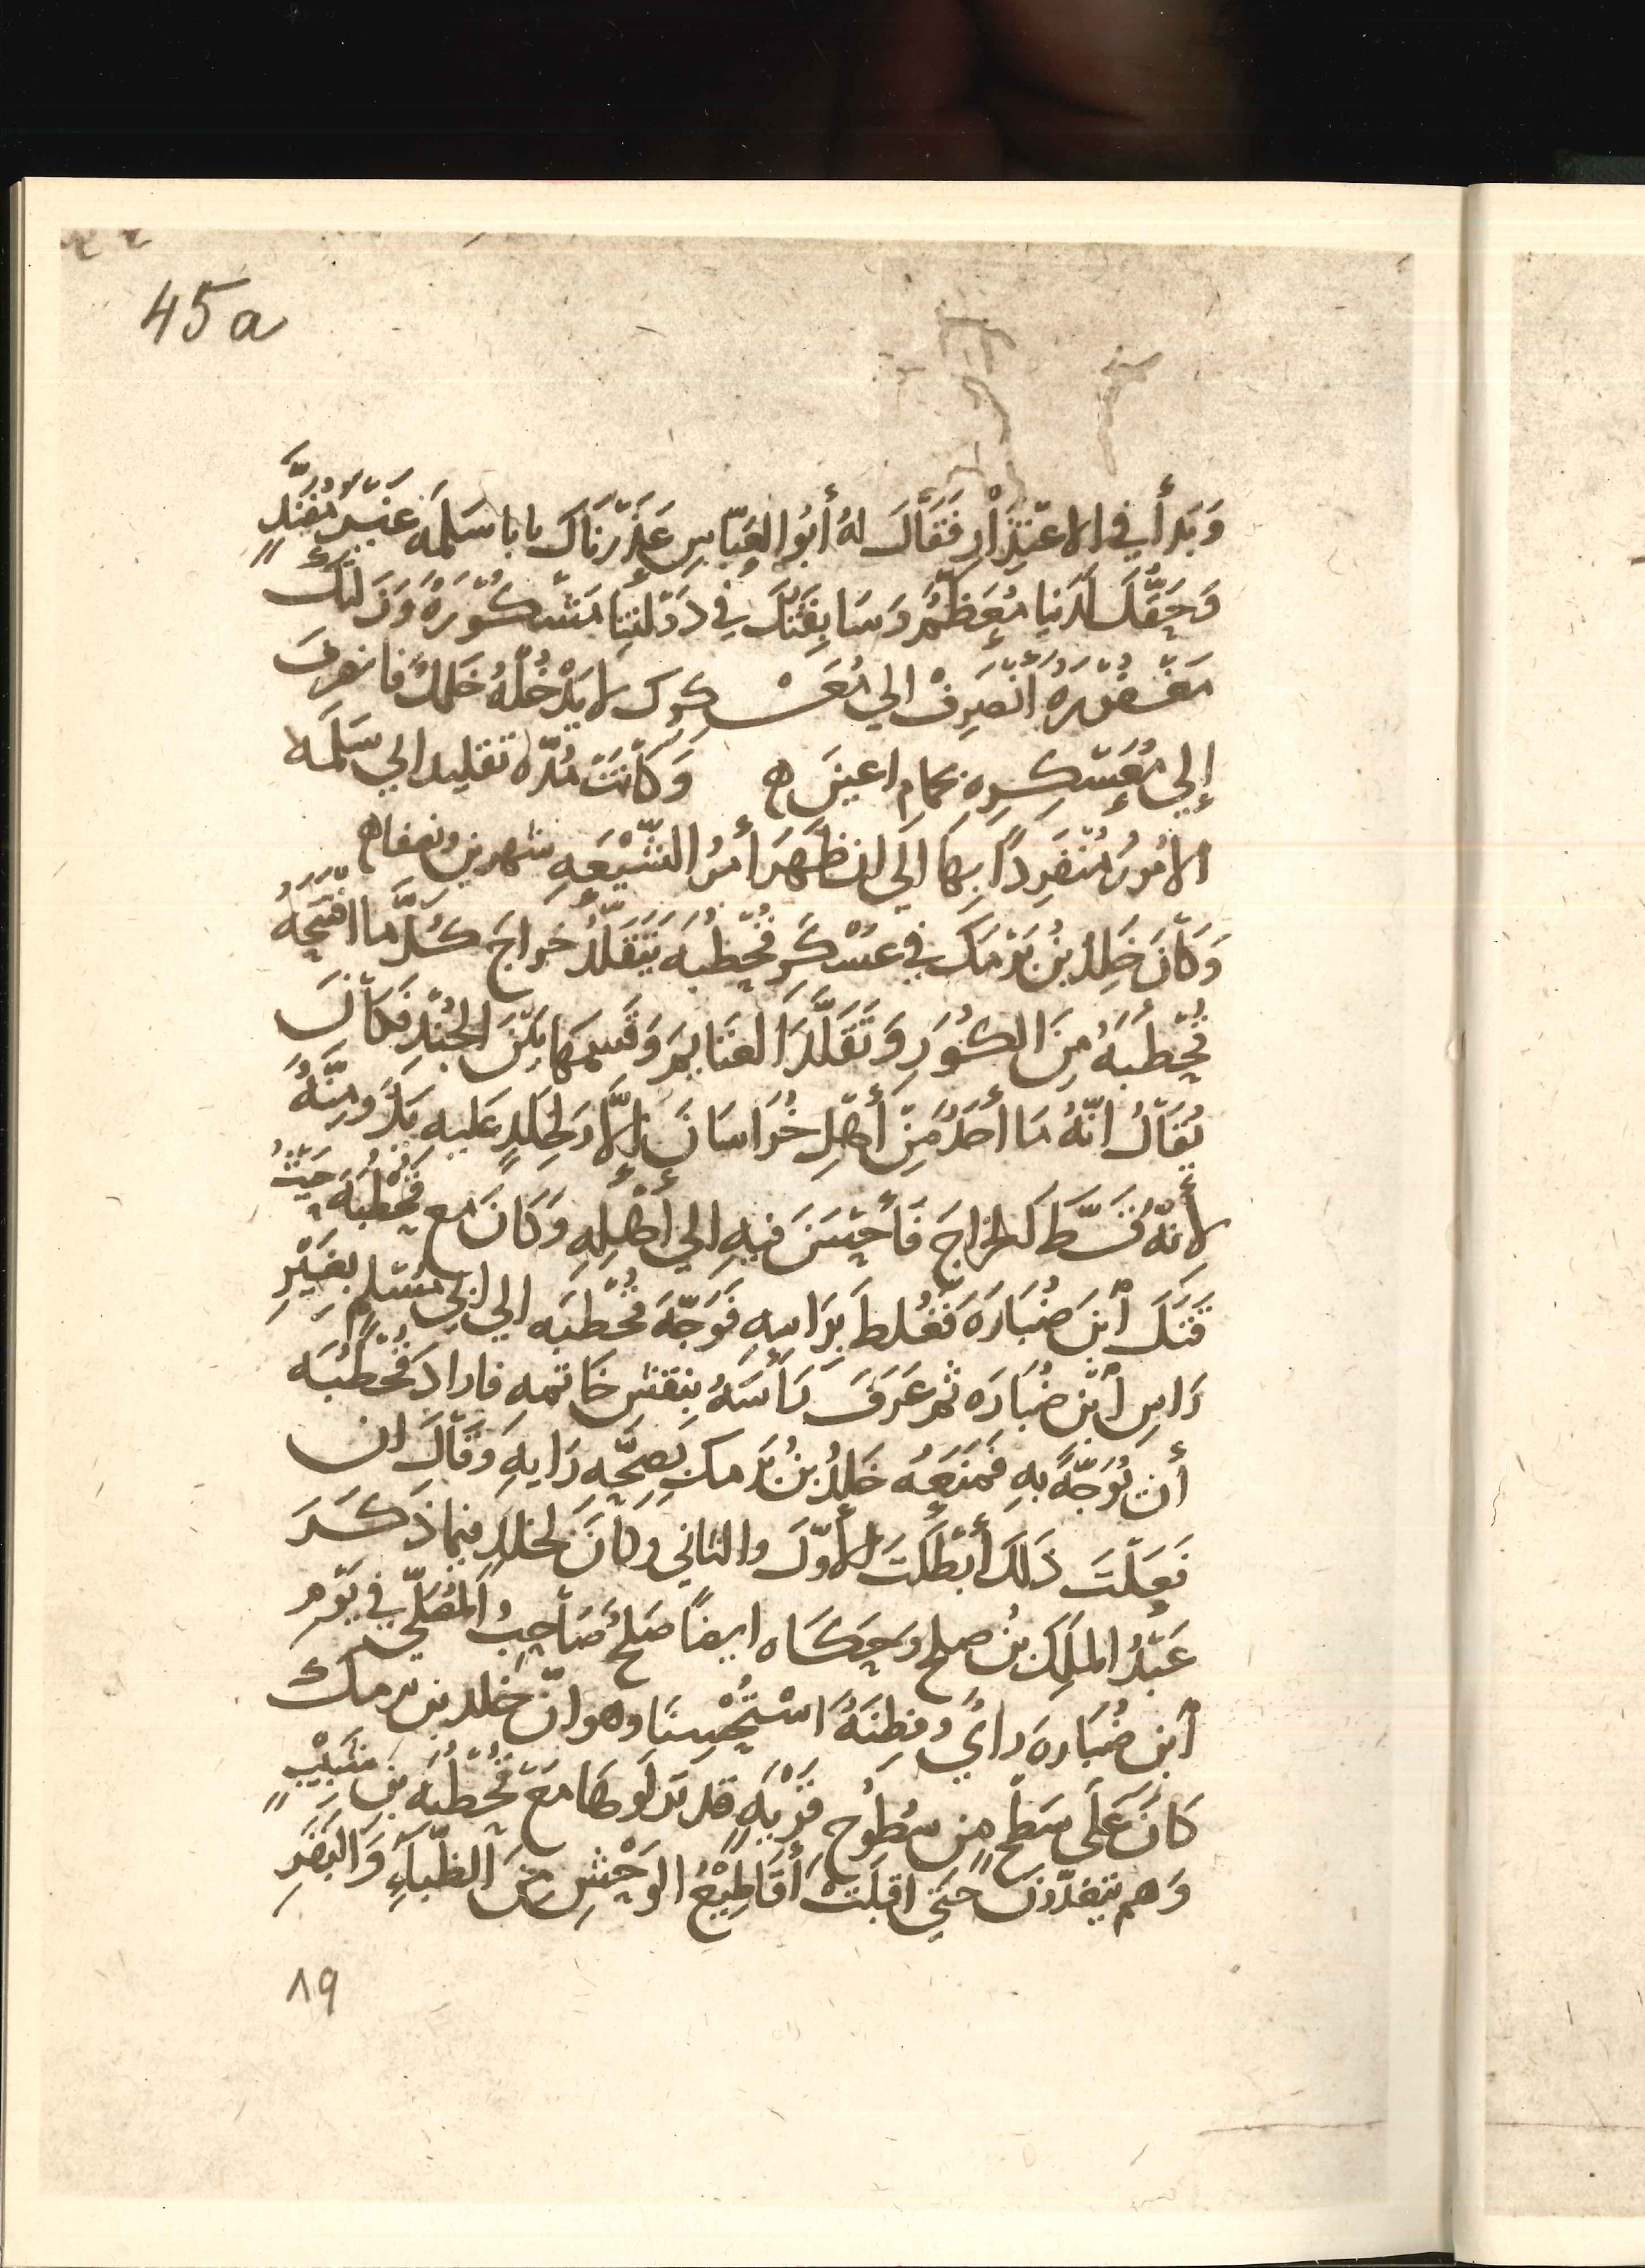 45a
وَبَدأَ في الاعْتِذَارِ فَقَالَ لهُ أبُو العَبّاسِ عَذَرْنَاكَ يابا سَلَمَه غَيْرَ مُفَنَّدٍ
وَحَقُّكَ لَدَينا مُعَظَّمٌ وَسَابِقَتُكَ في دَوْلَتِنَا مَشْكُوْرَةٌ وَزَلَّتُكَ
مَغْفُوْرَةٌ أنْصَرِفْ الي مُعَسْكَرِكَ لا يَدْخُلُهُ خَلَلٌ فانصرفَ
إلي مُعَسْكَرِهِ بحمامِ اعينَ ه وَكَانَتْ مُدَّه تقليد ابي سَلَمه
الامُورَ مُنْفَرِداً بِهَا الَى ان ظَهَرَ أَمرُ الشّيْعَهِ شهرين ونصفا ه
وَكَانَ خَلِدُ بنُ بَرْمَك في عَسْكَرِ قُحْطُبَه يَتَقَلَّدُ خَراجَ كُلِّ مَا افْتَتَحَهُ
قُحْطُبَهُ مِنَ الكُوَرِ وَتَقَلَّدَ الغنَايِمَ وَقَسمهَا بَيْنَ الجُنْدِ فَكَانَ
يُقَالُ انّهُ مَا أحَدٌ مِنْ أَهْلِ خُرَاسَانَ إلَّا ولِخَلِدٍ عَليه يَدٌ ومِنَّهٌ
لأنّهُ قَسَّطَ الخراجَ فَأحْسَنَ فيهِ الي أهْلِهِ وَكَانَ مع قُحْطُبَه حَيْثُ
قَتَلَ ابنَ ضُبَارَهَ فَغُلطَ بِرَاسِهِ فَوَجَّهَ قُحْطُبَه الي ابي مُسْلمٍ بغَيْرِ
رَاسِ ابْنِ ضُبَارَه ثم عَرَفَ رَأسَهُ بِنَقشِ خَاتمهِ فارادَ قُحْطُبَه
أن يُوَجّهَ بهِ فَمَنَعَهُ خَلِدُ بنُ بَرمك بِصِحَّهِ رَايهِ وَقَالَ ان
فَعَلْتَ ذَلكَ أبْطَلْتَ الأوّلَ والثاني وكَانَ لخلدٍ فيما ذَكَرَ
عَبْدُ الملِكِ بنُ صلح وحَكَاه ايضاً صَلحٌ صَاحِبُ المُصَلّي في يَوْمِ
ابنِ ضُبَارهَ رايٌ وفِطنَهٌ اسْتُحْسِنَا وهو انّ خلد بن برمك
كَانَ عَلَى سَطْحٍ مِن سُطوحِ قَرْيَهٍ قد نَزلوهَا مَعَ قُحْطُبَه بنِ شَبِيْبٍ
وَهم يتغدّونَ حَتي اقبلَتْ أقَاطِيْعُ الوَحْشِ منَ الظّبَآءِ وَالبَقَرِ
٨٩